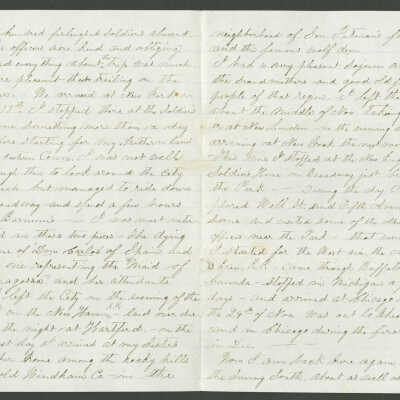 hundred furloughed soldiers aboard
officers were kind and obliging
and everything about the trip was much
more pleasant than sailing on the
We arrived at New York on
13th I stopped there at the Soldiers
something more than a day
before starting for my
eastern Conn. I was not well
enough to look around the City
much but managed to ride down
Broadway and spend a few hours
Barnums I was most
there two
of Don Carlos of Spain and
one representing the Maid of
Saragossa and her attendants
left the City on the evening of the
on the New Haven laid over
the night at Hartford on the
next day at arrived at my Sisters
home among the rocky hills
old Windham Co in the
neighborhood of Gen Putnams
and the famous wolf den
I had a very pleasant sojourn
the grandmothers and good old
people of that region I left
about the middle of Nov taking
at New London in the evening
arriving at New York the next
This time I stopped at the New England
Soldiers Home on Broadway just
the Park During the day I
Wall St and Fifth Avenue
home and visited some of the
offices near the Park that
I started for the West via the
Erie R.R. came through Buffalo
Canada stopped in Michigan a
days and arrived at Chicago
the 29th of Nov was out to
and in Chicago during the first
in Dec.
Now I am back here again
the Sunny South, about as well as